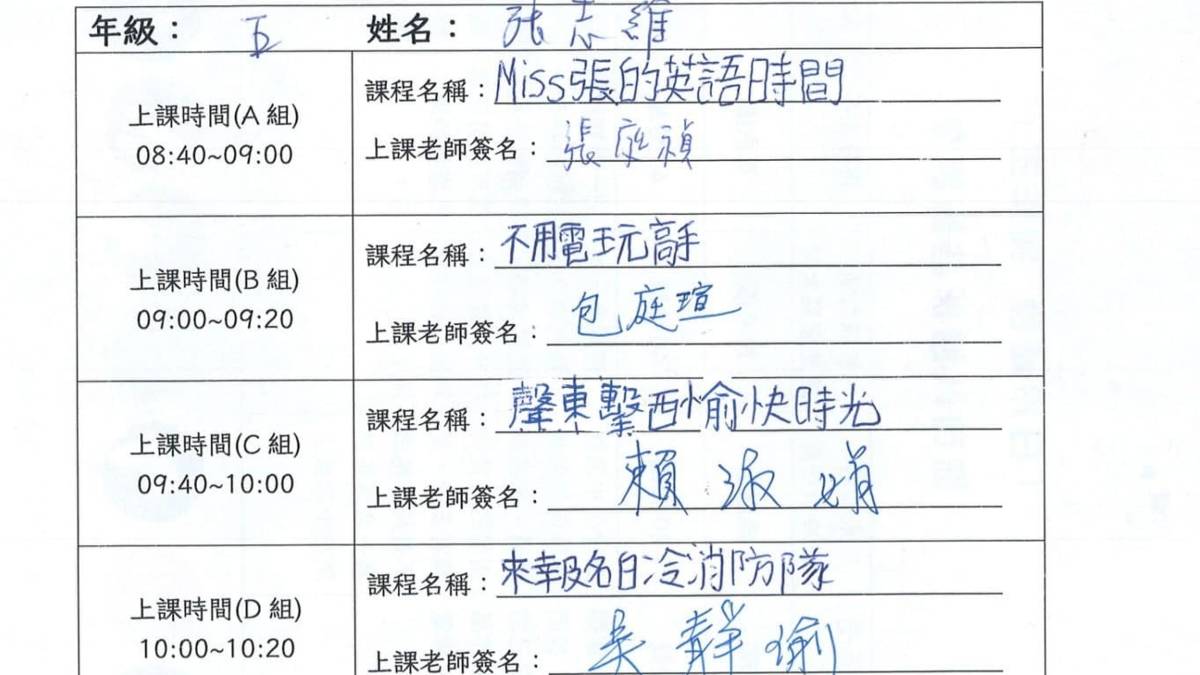 年級： 五 姓名： 張志維
上課時間(A 組)
08:40~09:00
課程名稱：Miss張的英語時間
上課老師簽名：張庭禎
上課時間(B 組)
09:00~09:20
課程名稱：不用電玩高手
上課老師簽名：包庭瑄
上課時間(C 組)
09:40~10:00
課程名稱：聲東擊西愉快時光
上課老師簽名：賴淑娟
上課時間(D 組)
10:00~10:20
課程名稱：來報名白冷消防隊
上課老師簽名：吳靜瑜